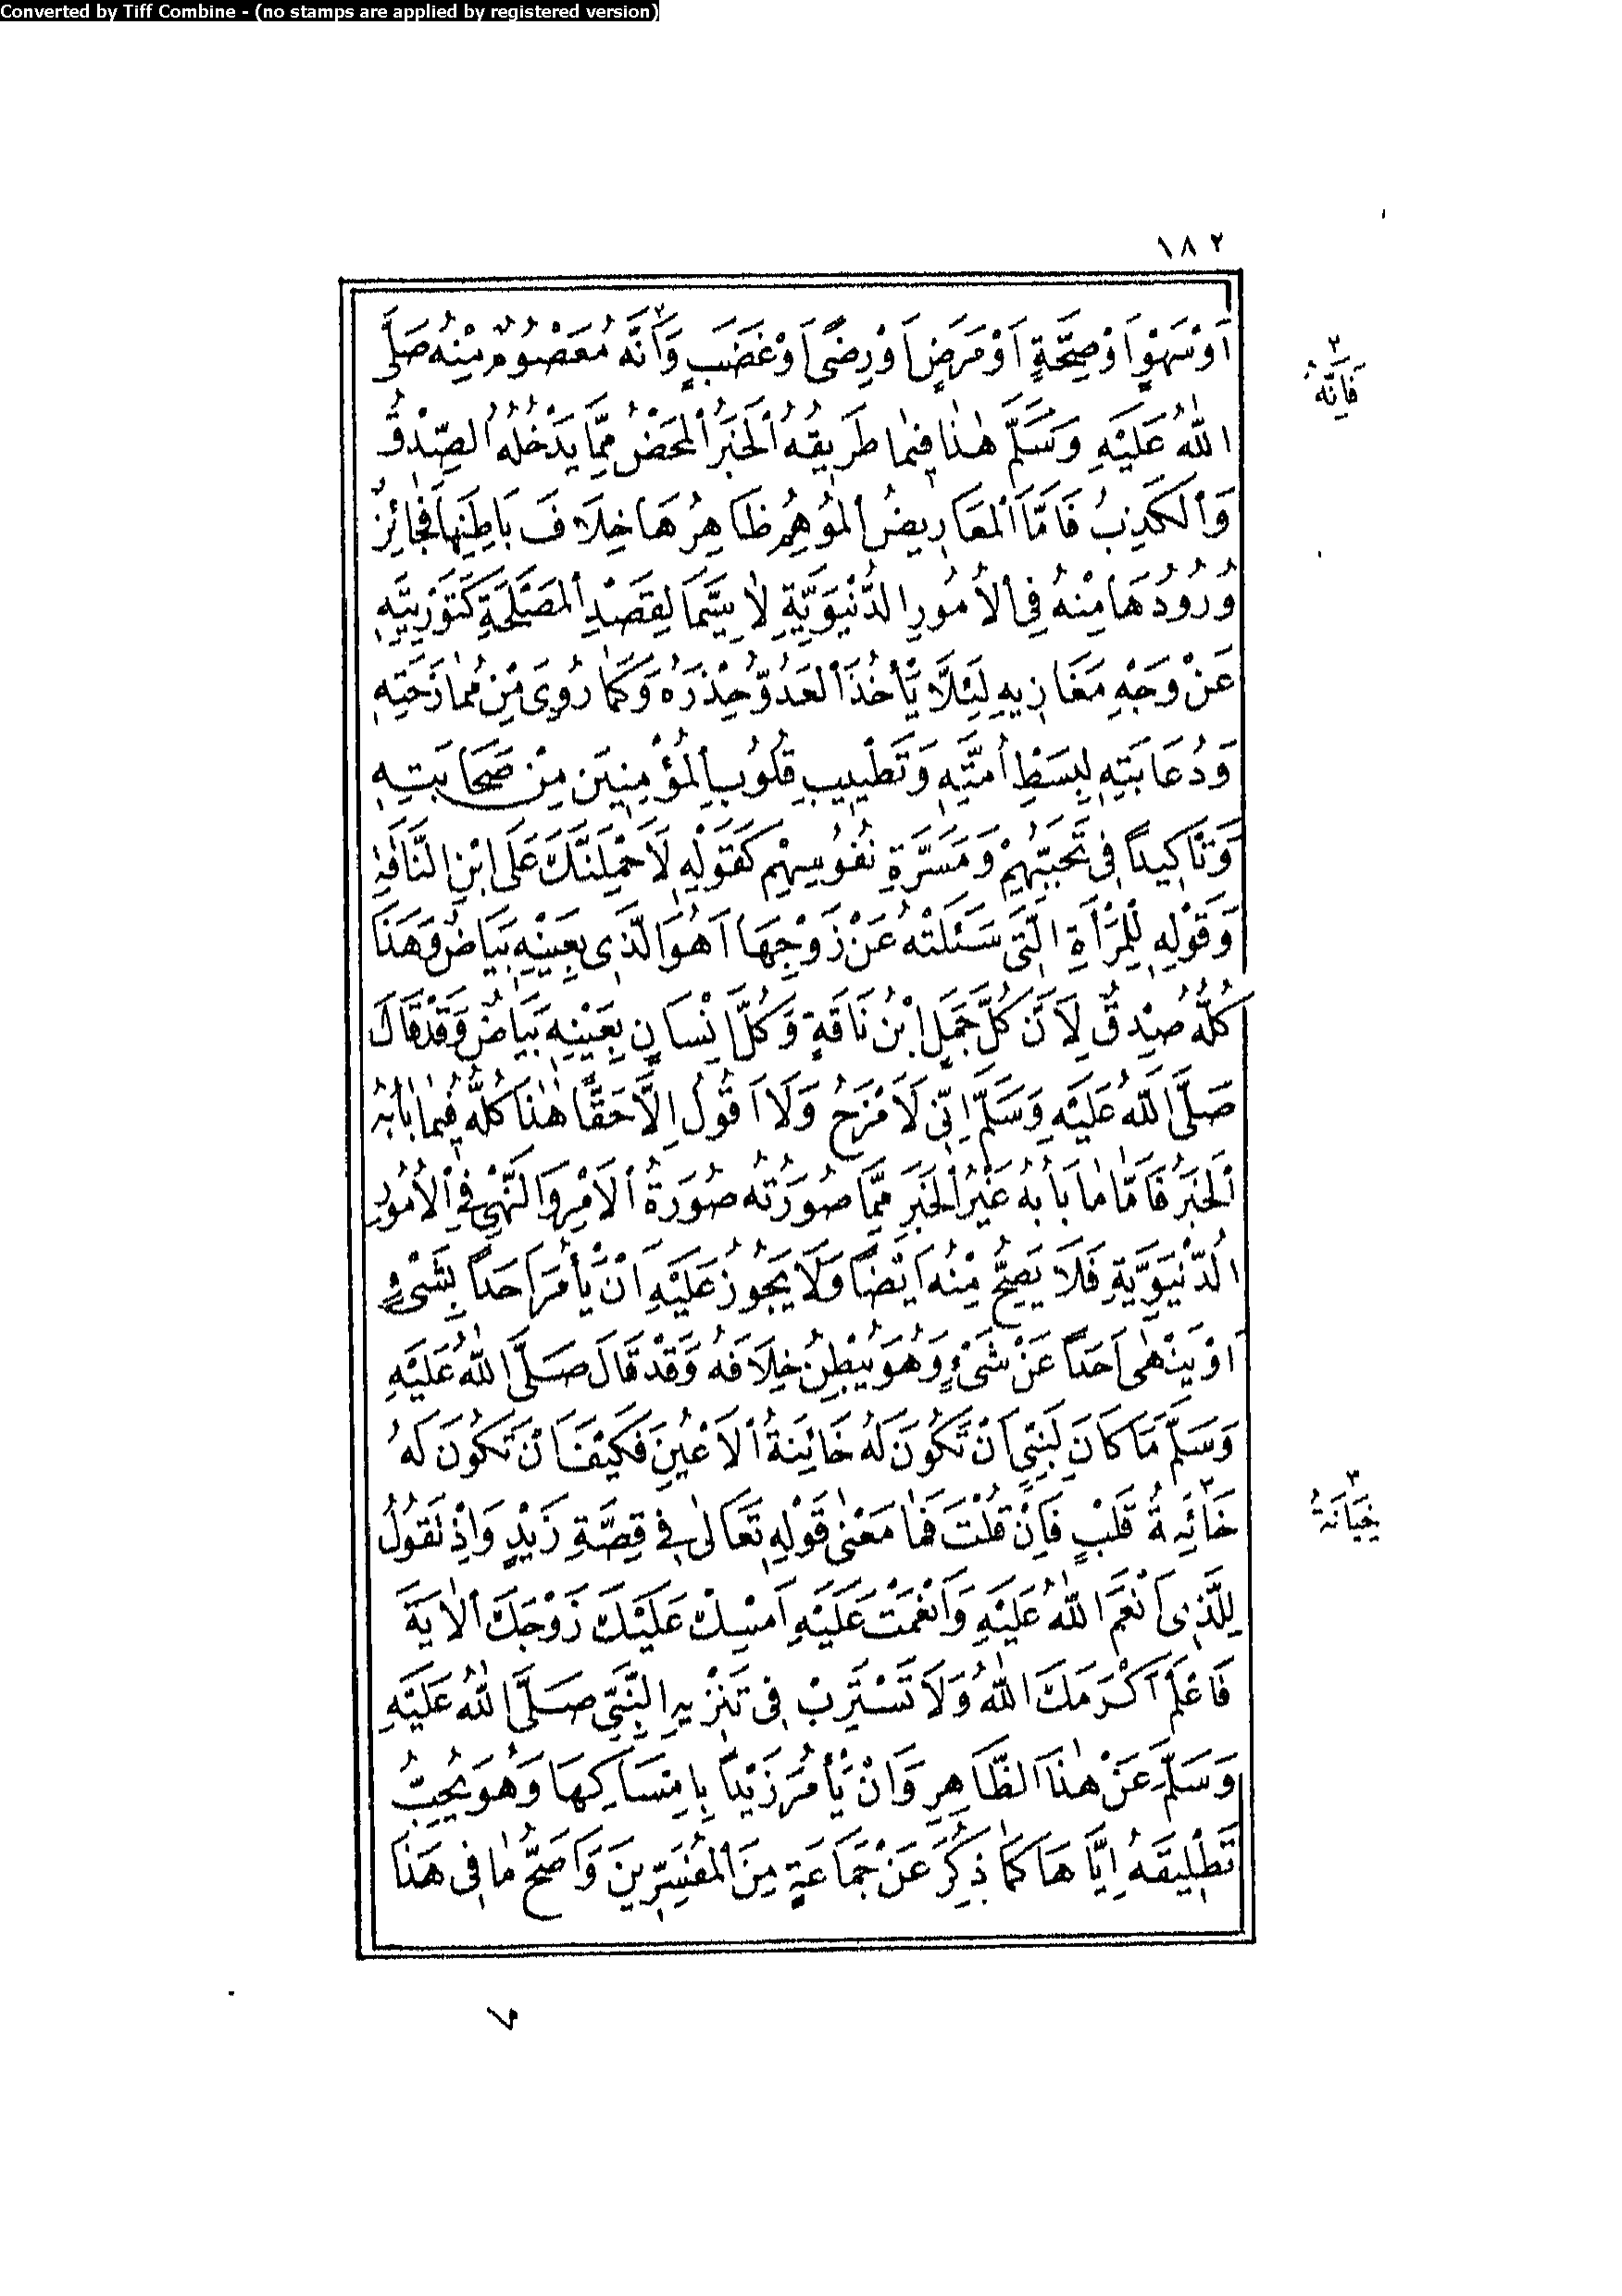 Converted by Tiff Combine - (no stamps are applied by registered version)
١٨٢
اَوْ سَهْوٍ اَوْ صِحَّةٍ اَوْ مَرَضٍ اَوْ رِضًى اَوْ غَضَبٍ وَاَنَّهُ مَعْصُومٌ مِنْهُ صَلَّى
اللهُ عَلَيْهِ وَسَلَّمَ هٰذَا فِيمَا طَرِيقُهُ الْخَبَرُ الْمَحْضُ مِمَّا يَدْخُلُهُ الصِّدْقُ
وَالْكَذِبُ فَاَمَّا الْمَعَارِيضُ الْمُوهِمُ ظَاهِرُهَا خِلَافَ بَاطِنِهَا فَجَائِزٌ
وُرُودُهَا مِنْهُ فِي الْاُمُورِ الدُّنْيَوِيَّةِ لَاسِيَّمَا لِقَصْدِ الْمَصْلَحَةِ كَتَوْرِيَتِهِ
عَنْ وَجْهِ مَغَازِيهِ لِئَلَّا يَأْخُذَ الْعَدُوُّ حِذْرَهُ وَكَمَا رُوِيَ مِنْ مُمَازَحَتِهِ
وَدُعَابَتِهِ لِبَسْطِ اُمَّتِهِ وَتَطْيِيبِ قُلُوبِ الْمُؤْمِنِينَ مِنْ صَحَابَتِهِ
وَتَاْكِيداً فِي تَحَبُّبِهِمْ وَمَسَرَّةِ نُفُوسِهِمْ كَقَوْلِهِ لَاَحْمِلَنَّكَ عَلَى ابْنِ النَّاقَةِ
وَقَوْلِهِ لِلْمَرْأَةِ الَّتِي سَئَلَتْهُ عَنْ زَوْجِهَا اَهُوَ الَّذِي بِعَيْنِهِ بَيَاضٌ وَهَذَا
كُلُّهُ صِدْقٌ لِاَنَّ كُلَّ جَمَلٍ ابْنُ نَاقَةٍ وَكُلَّ اِنْسَانٍ بِعَيْنِهِ بَيَاضٌ وَقَدْ قَالَ
صَلَّى اللهُ عَلَيْهِ وَسَلَّمَ اِنِّي لَاَمْزَحُ وَلَا اَقُولُ اِلَّا حَقًّا هٰذَا كُلُّهُ فِيمَا بَابُهُ
الْخَبَرُ فَاَمَّا مَا بَابُهُ غَيْرُ الْخَبَرِ مِمَّا صُورَتُهُ صُورَةُ الْاَمْرِ وَالنَّهْيِ فِي الْاُمُورِ
الدُّنْيَوِيَّةِ فَلَا يَصِحُّ مِنْهُ اَيْضاً وَلَا يَجُوزُ عَلَيْهِ اَنْ يَأْمُرَ اَحَداً بِشَيْءٍ
اَوْ يَنْهٰى اَحَداً عَنْ شَيْءٍ وَهُوَ يُبْطِنُ خِلَافَهُ وَقَدْ قَالَ صَلَّى اللهُ عَلَيْهِ
وَسَلَّمَ مَا كَانَ لِنَبِيٍّ اَنْ تَكُونَ لَهُ خَائِنَةُ الْاَعْيُنِ فَكَيْفَ اَنْ تَكُونَ لَهُ
خَائِنَةُ قَلْبٍ فَاِنْ قُلْتَ فَمَا مَعْنٰى قَوْلِهِ تَعَالٰى فِي قِصَّةِ زَيْدٍ وَاِذْ تَقُولُ
لِلَّذِي اَنْعَمَ اللهُ عَلَيْهِ وَاَنْعَمْتَ عَلَيْهِ اَمْسِكْ عَلَيْكَ زَوْجَكَ الْاٰيَةَ
فَاعْلَمْ اَكْرَمَكَ اللهُ وَلَا تَسْتَرِبْ فِي تَنْزِيهِ النَّبِيِّ صَلَّى اللهُ عَلَيْهِ
وَسَلَّمَ عَنْ هٰذَا الظَّاهِرِ وَاَنْ يَأْمُرَ زَيْداً بِاِمْسَاكِهَا وَهُوَ يُحِبُّ
تَطْلِيقَهُ اِيَّاهَا كَمَا ذُكِرَ عَنْ جَمَاعَةٍ مِنَ الْمُفَسِّرِينَ وَاَصَحُّ مَا فِي هَذَا
٢
فَاِنَّهُ
٣
خِيَانَةُ